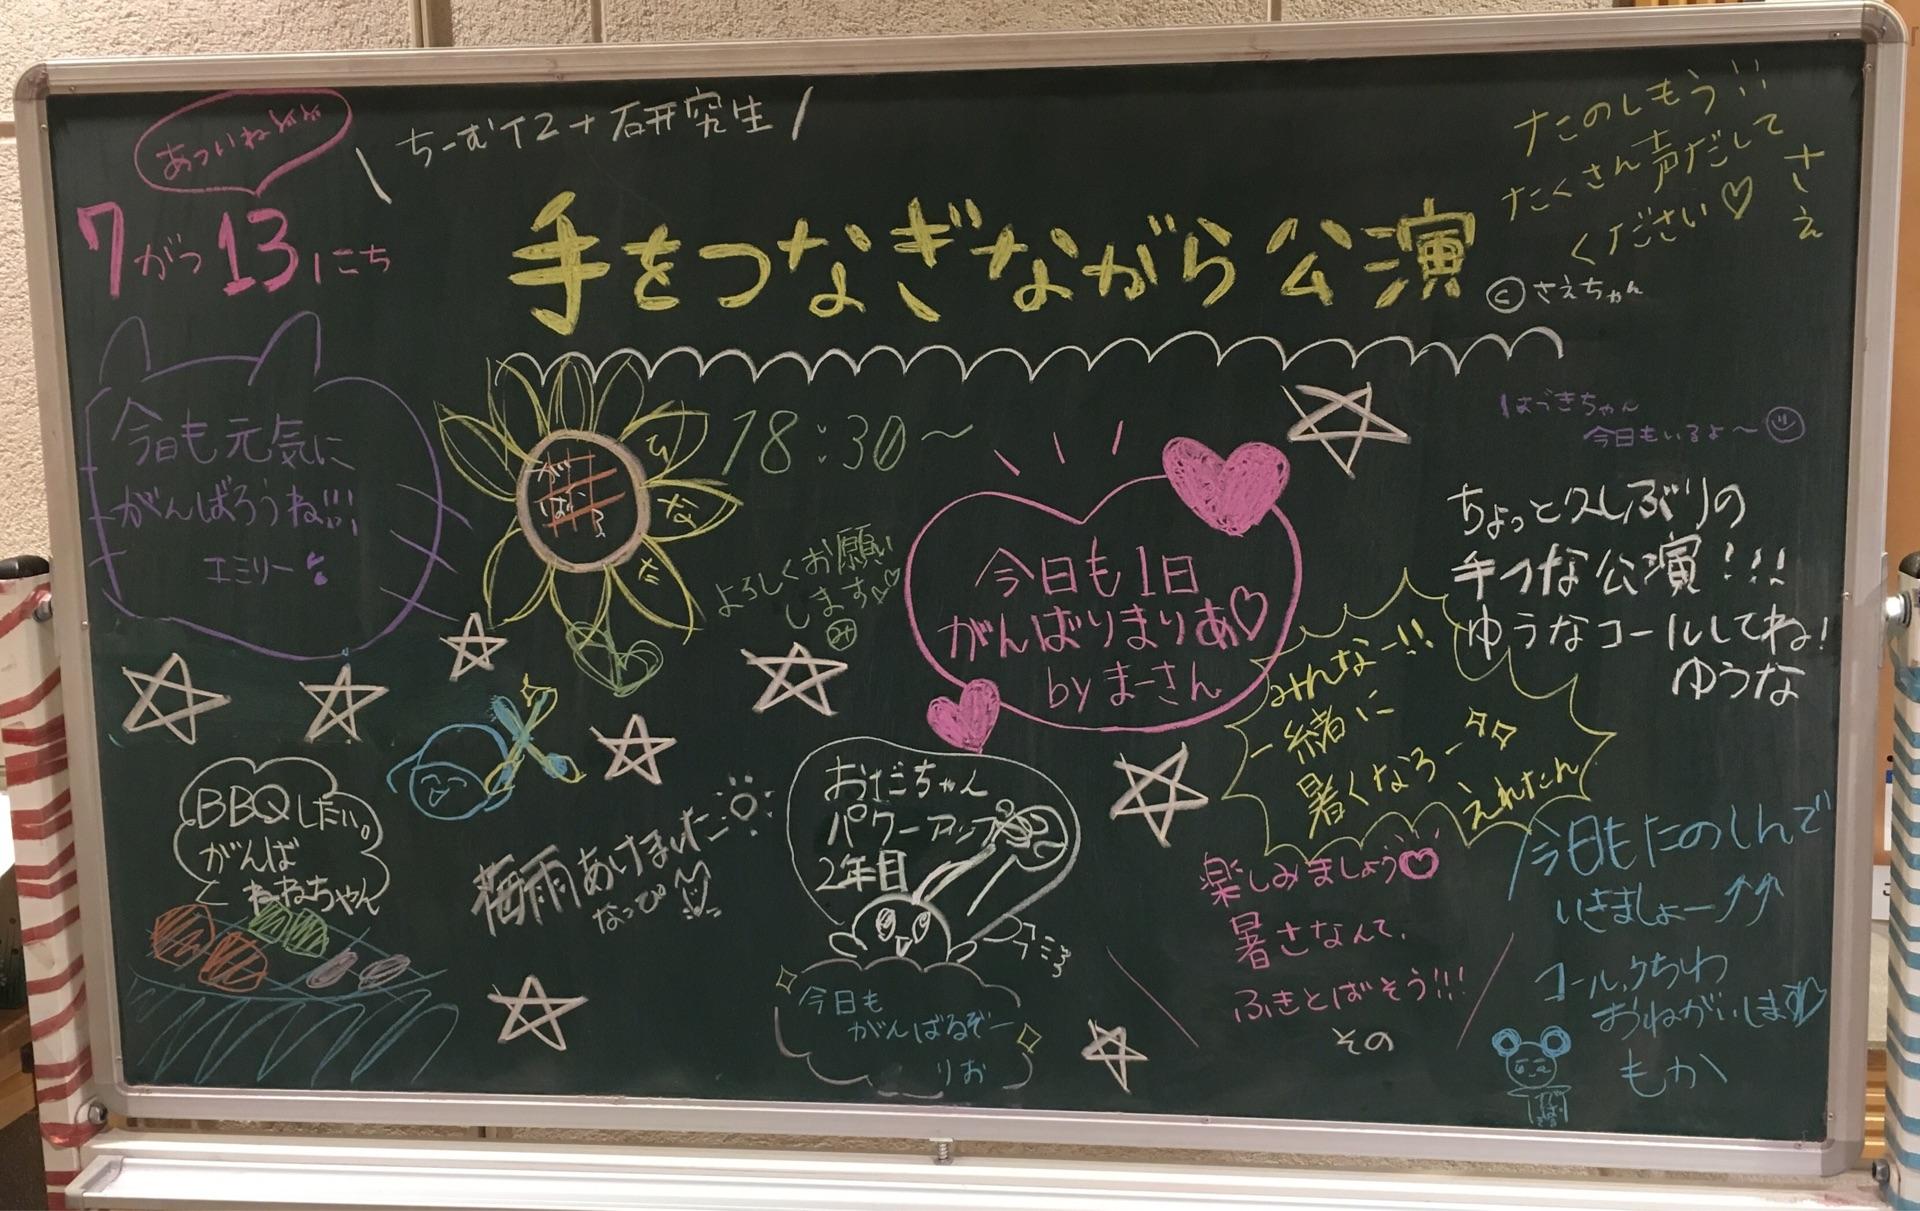 あついね
7がつ13にち
ちーむT2+研究生
手をつなぎながら公演
©さえちゃん
たのしもう!!
たくさん声だして
ください♡
さえ
今日も元気に
がんばろうね!!!
エミリー
がんばろう
ひなた
18:30〜
よろしくお願い
します♡
今日も1日
がんばりまりあ♡
by まーさん
はづきちゃん
今日もいるよ〜
ちょっと久しぶりの
手つな公演!!!
ゆうなコールしてね!
ゆうな
みんなー!!
一緒に
暑くなろー
えれたん
BBQしたい。
がんば
ねねちゃん
梅雨あけました
なっぴ
おだちゃん
パワーアップ
2年目
今日も
がんばるぞー
りお
楽しみましょう♡
暑さなんて、
ふきとばそう!!!
その
今日もたのしんで
いきましょー↗↗
コール、うちわ
おねがいします♡
もか